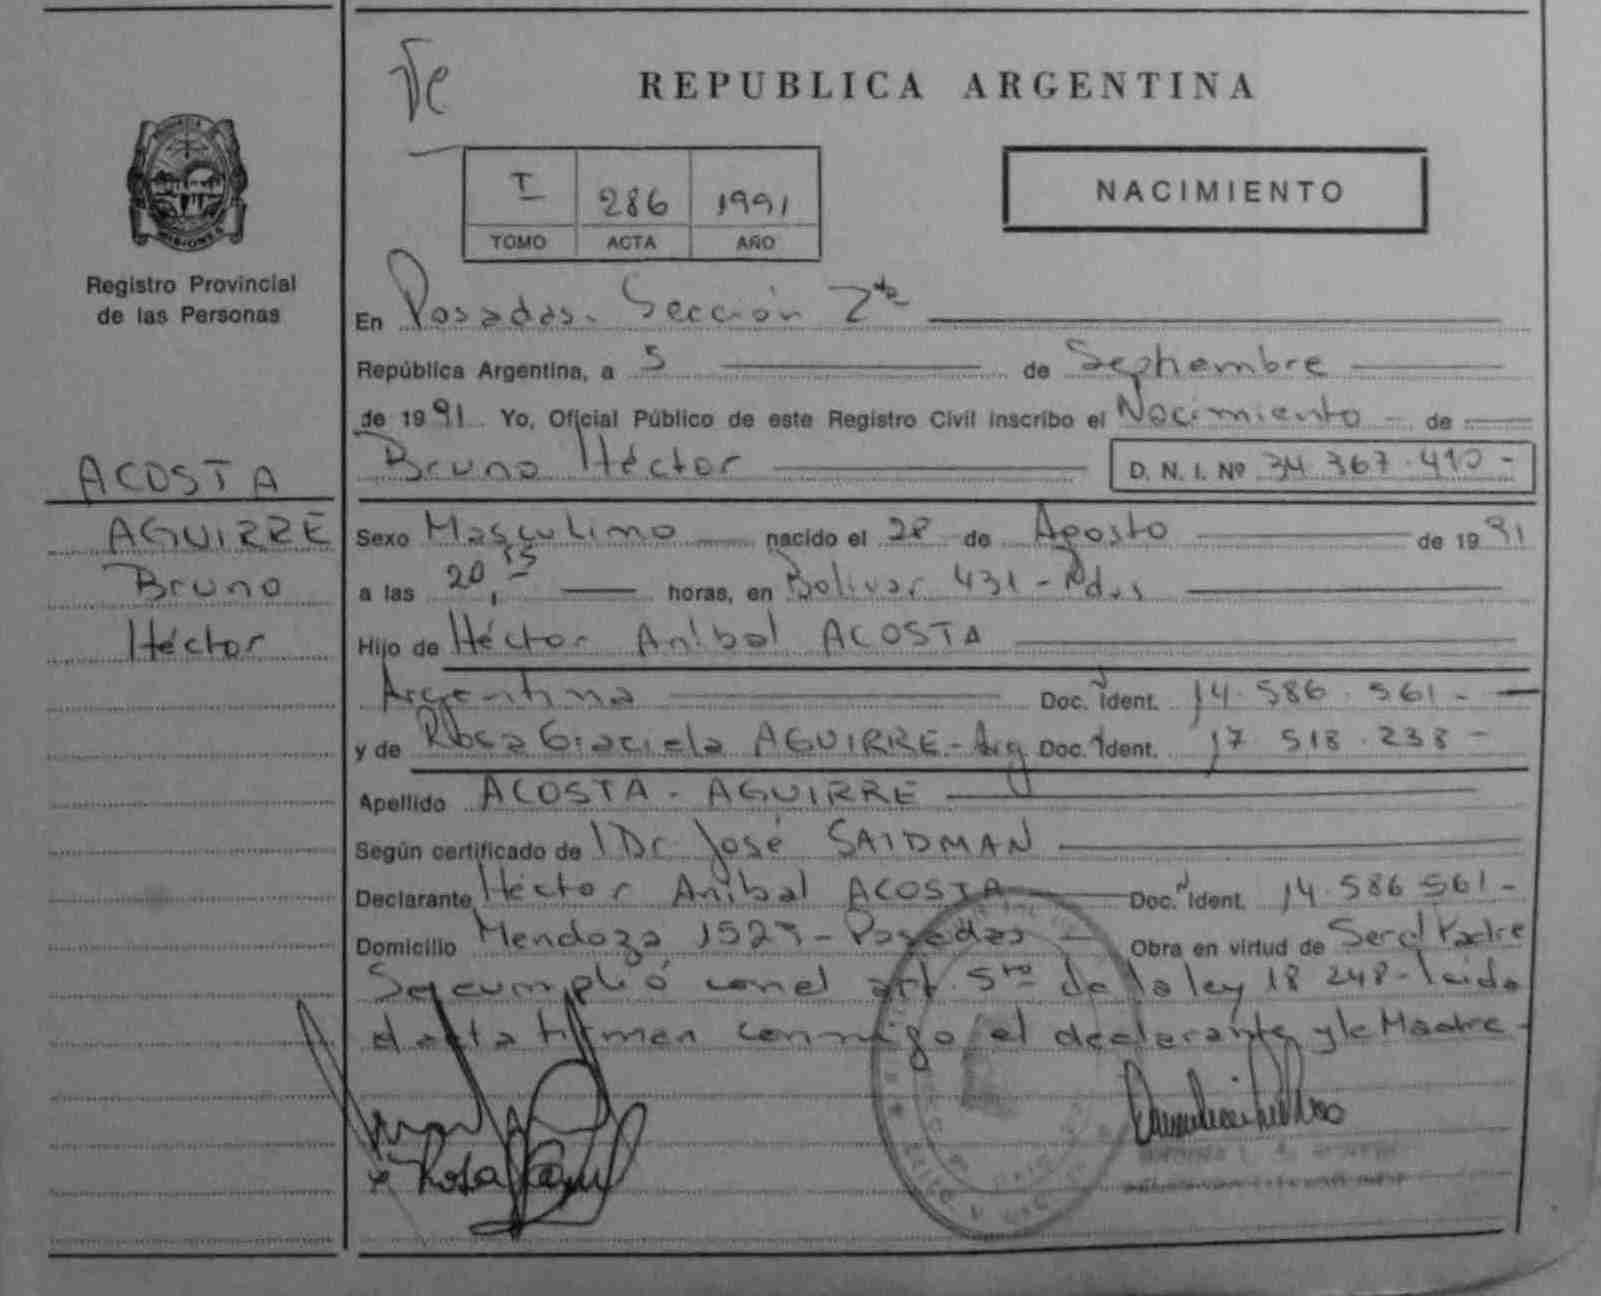 Te
REPUBLICA ARGENTINA
I 286 1991
TOMO ACTA AÑO
NACIMIENTO
MISIONES
Registro Provincial
de las Personas
En Posadas. Sección 2da
República Argentina, a 5 de Septiembre
de 1991 Yo, Oficial Público de este Registro Civil inscribo el Nacimiento - de
Bruno Héctor D. N. I. Nº 34.367.410-
ACOSTA
AGUIRRE
Bruno
Héctor
Sexo Masculino nacido el 28 de Agosto de 1991
a las 20,15 horas, en Bolivar 431 - Pdas
Hijo de Héctor Aníbal ACOSTA
Argentina Doc. Ident. 14.586.561-
y de Rosa Graciela AGUIRRE - Arg Doc. Ident. 17 518.238-
Apellido ACOSTA - AGUIRRE
Según certificado de Dr. José SAIDMAN
Declarante Héctor Aníbal ACOSTA Doc. Ident. 14.586 561-
Domicilio Mendoza 1527 - Posadas - Obra en virtud de Ser el Padre
Se cumplió con el art. 5to de la ley 18 248 - Leída
el acta firman conmigo el declarante y la Madre -
Rosa